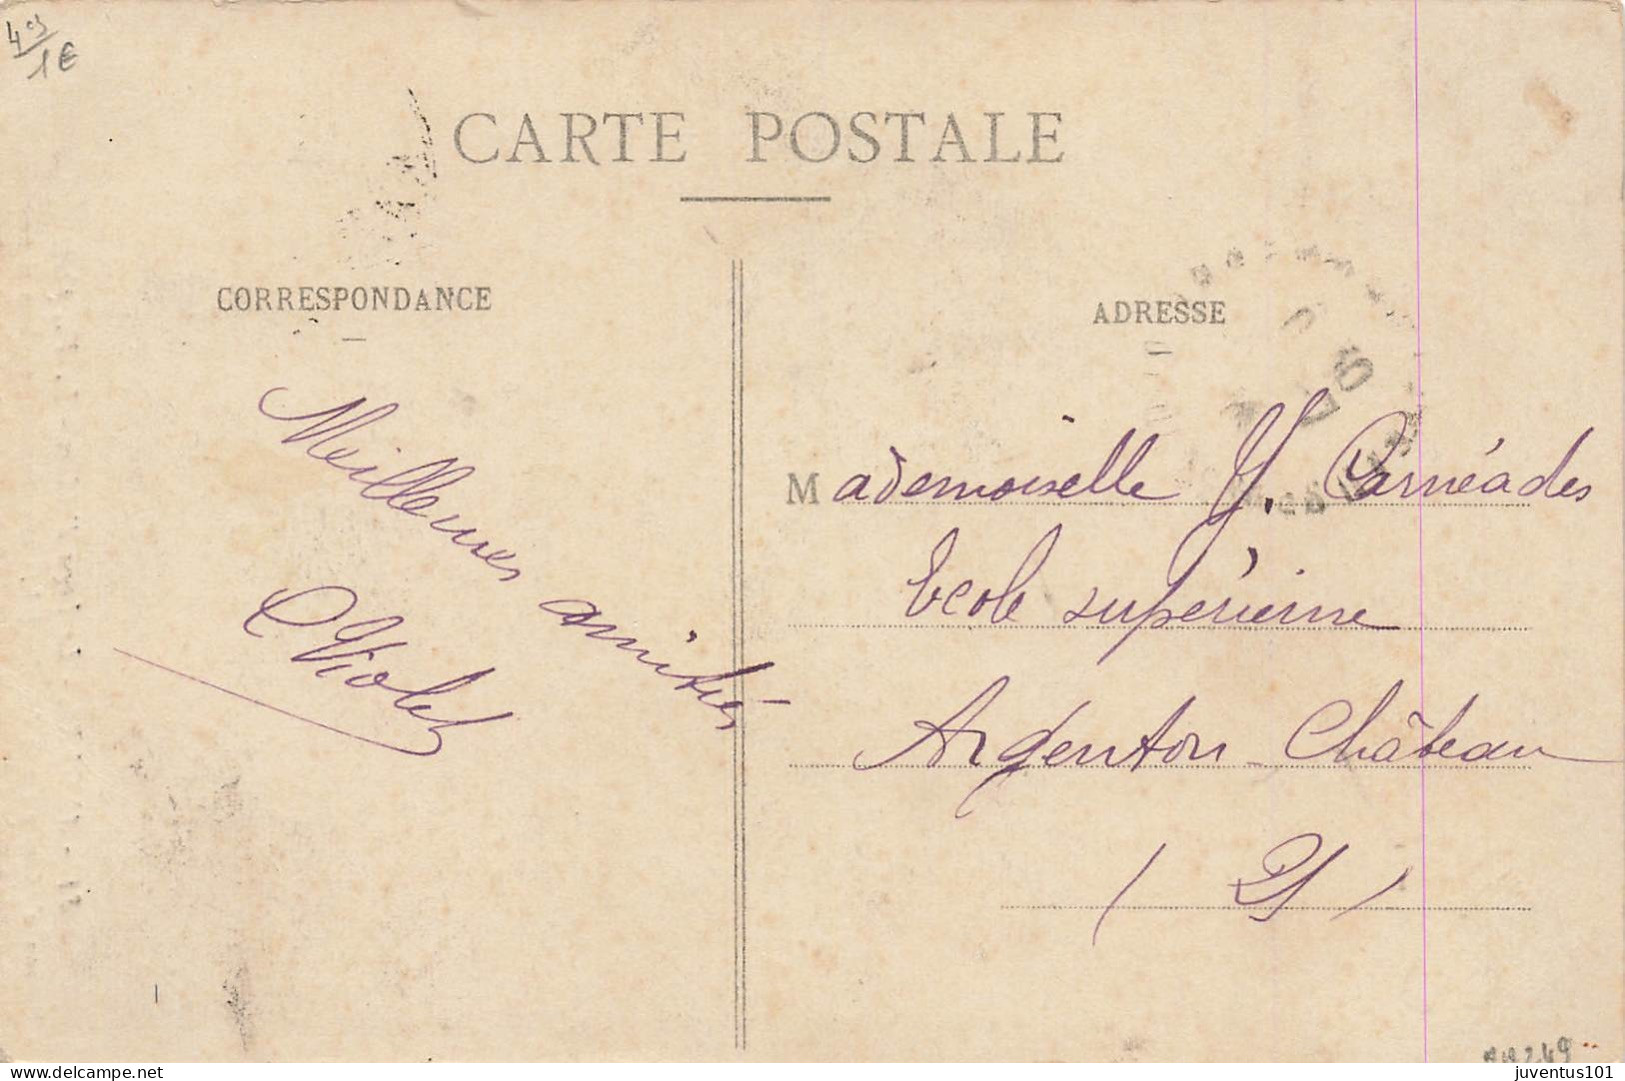 1€
CARTE POSTALE
CORRESPONDANCE
Meilleures amitiés
CViolet
ADRESSE
Mademoiselle Y. Carnéades
Ecole supérieure
Argenton-Château
(2S)
delcampe.net
juventus101